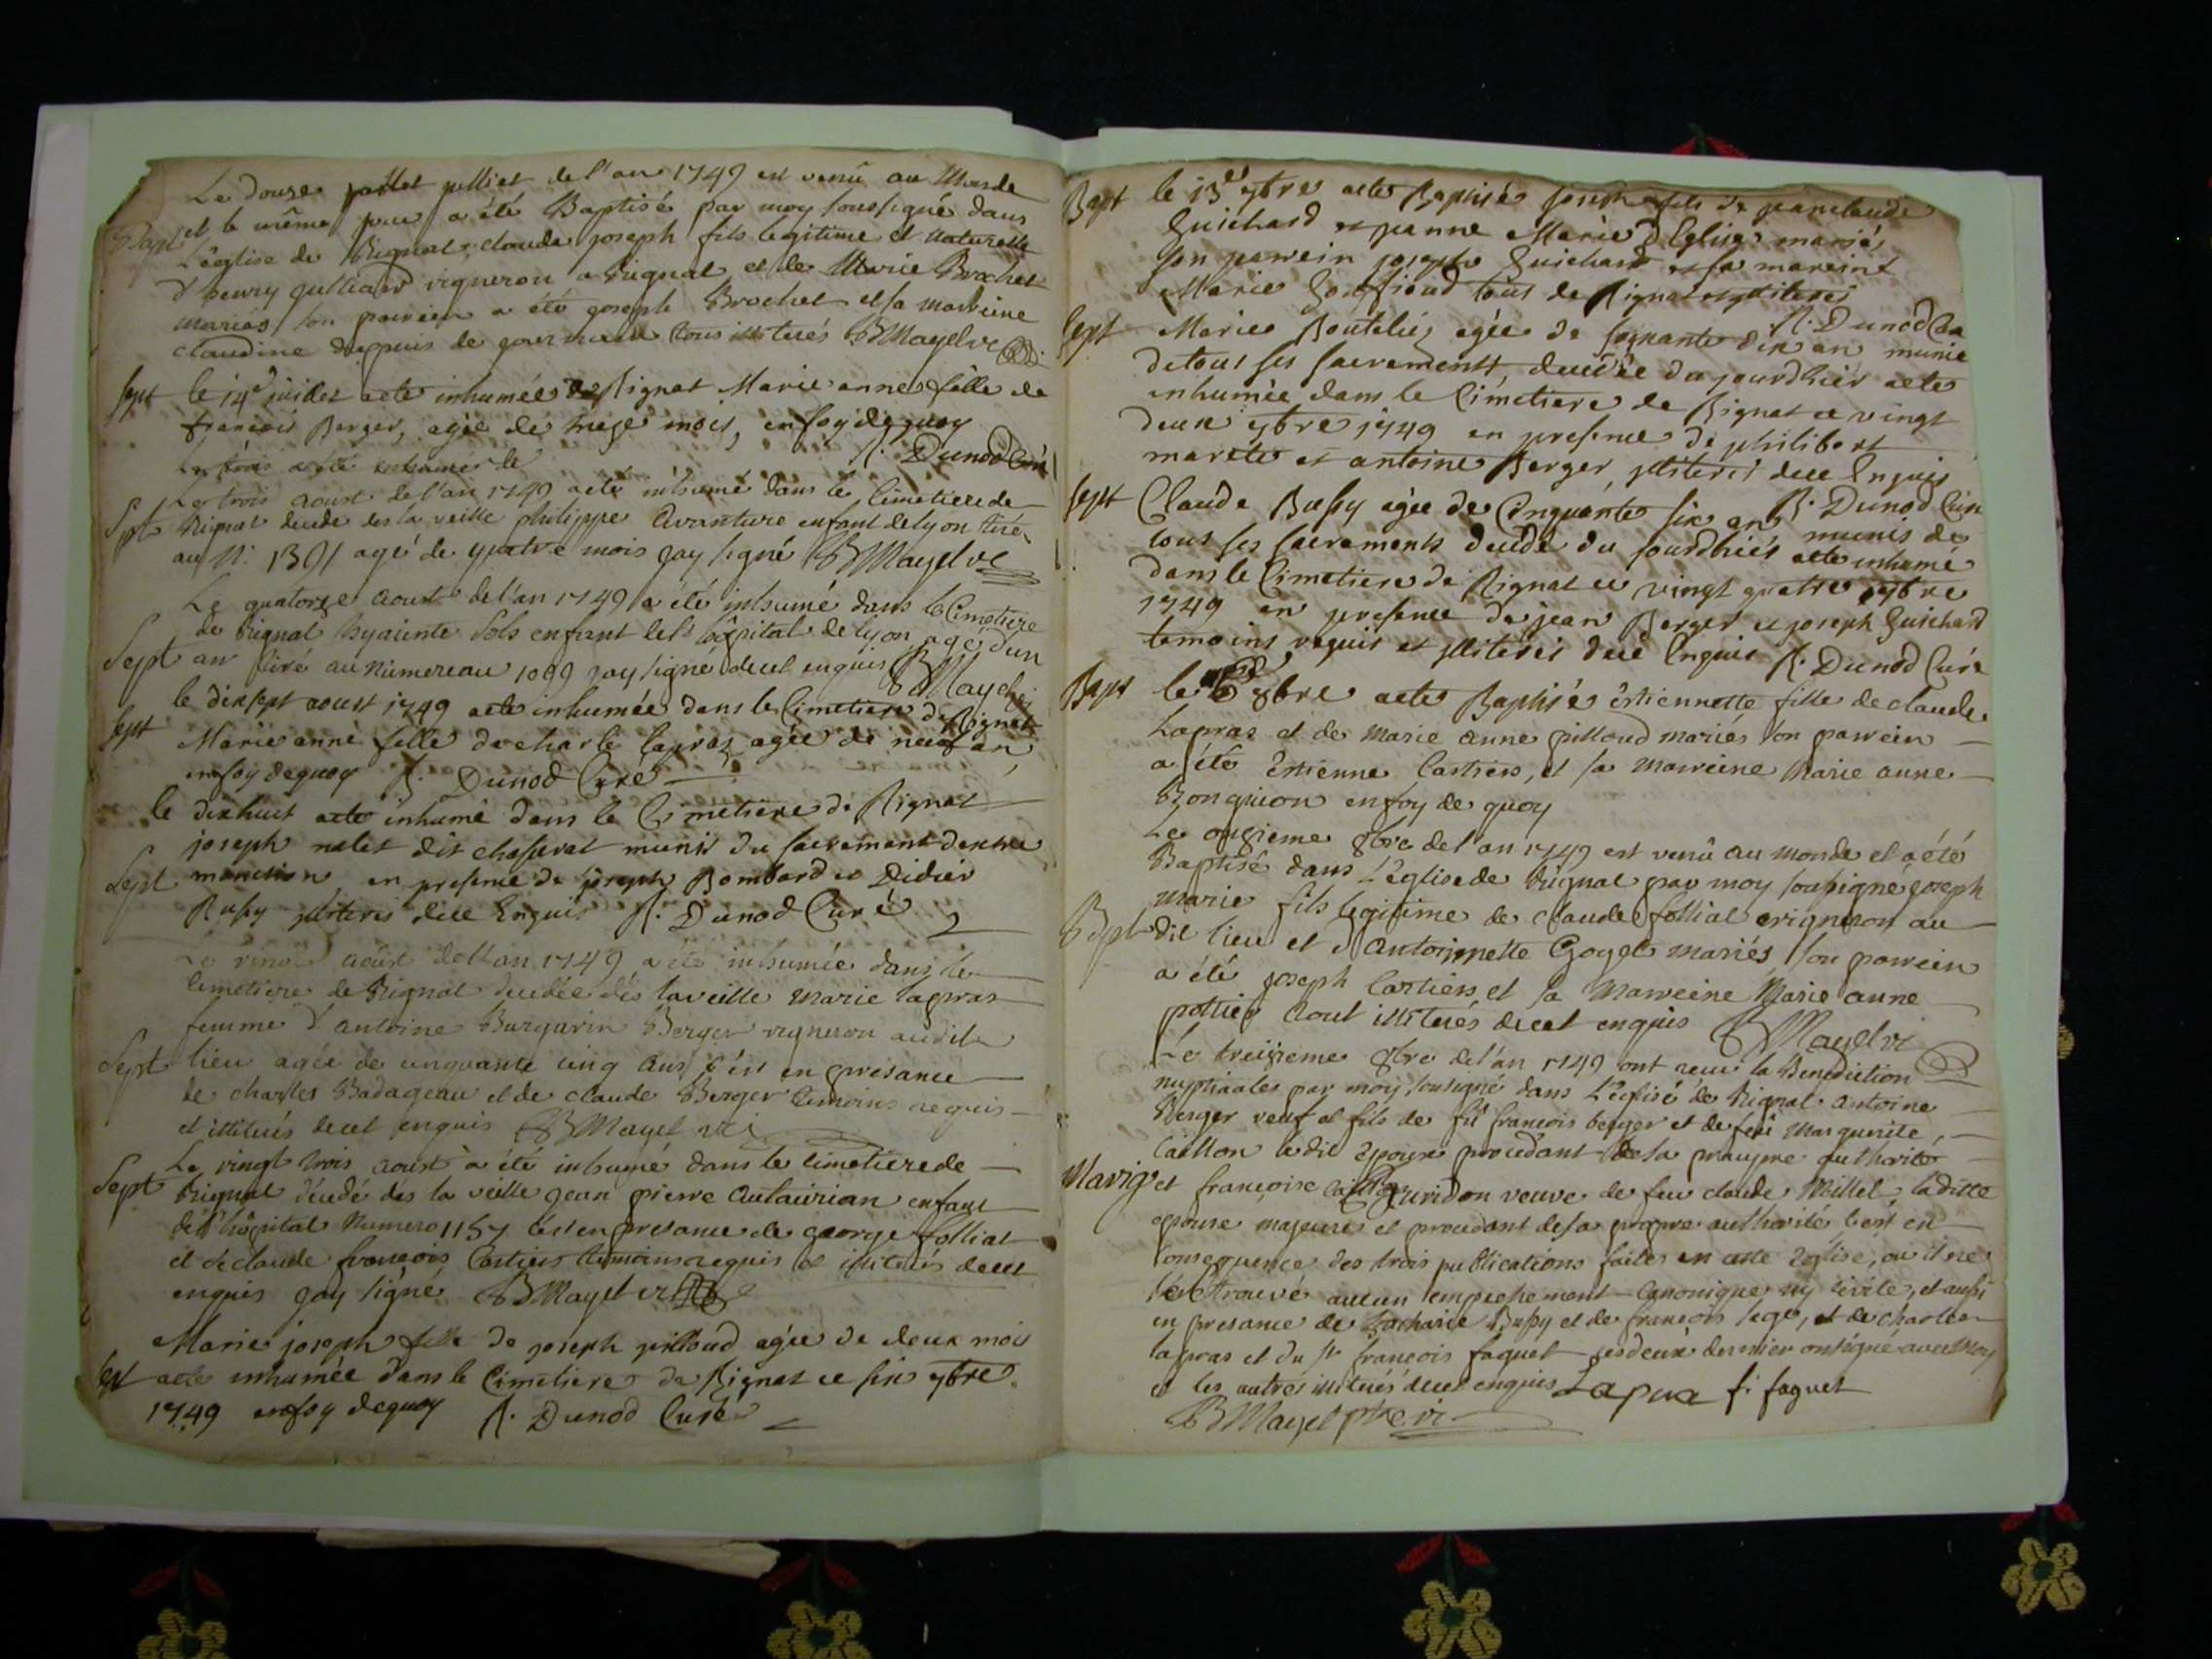 Le douze juilliet de l'an 1749 est venû au Monde
Bapt et le même jour a été Baptisé par moy soussigné dans
L'église de Rignat claude joseph fils legitime et naturelle
d'henry guilliard vigneron a Rignat et de Marie Brochet
mariés son parrein a été joseph Brochet et sa marreine
claudine dupuis de tous illiterés BMayet vi
sept le 14e juillet a ete inhumée a Rignat Marie anne fille de
francois Berger, agée de treze mois, en foy de quoy
R. Dunod Curé
Le trois a été inhumé le
Le trois aoust de l'an 1749 a eté inhumé dans le cimetiere de
Sept Rignat decedé des la veille philippe avanture enfant de lyon tiré
au N: 1391 agé de quatre mois jay signé BMayet vi
Le quatorze aoust de l'an 1749 a été inhumé dans le Cimetiere
de Rignat hyacinte Sols enfant de l'hôpital de lyon agé d'un
Sept an tiré au numereau 1099 jay signé de cet enquis BMayet
le dix sept aoust 1749 a ete inhumée dans le Cimetiere de Rignat
sept Marie anne fille de charle lapraz agée de neuf an,
en foy de quoy R. Dunod Curé
le dix huit a ete inhumé dans le Cimetiere de Rignat
joseph nalet dit chaferat munis du sacrement d'extre
Sept monction en presence de joseph Bombard et Didier
Bussy illiteris dece Enquis R. Dunod Curé
Le vingt aoust de l'an 1749 a été inhumée dans le
cimetiere de Rignat decedée dés la veille Marie lapras
femme d'antoine Burgarin Berger vigneron audit
Sept lieu agée de cinquante cinq ans c'est en présance
de charles Badageau et de claude Berger temoins requis
et illiterés de cet enquis BMayet vi
Le vingt trois aoust a été inhumé dans le cimetiere de
Sept Rignat décedé des la veille jean pierre enfant
de l'hôpital Numero 1157 c'est en presance de george folliat
et de claude françois Cartiers temoins requis et illiterés de cet
enquis jay signé BMayet vi
Marie joseph fille de joseph pilloud agée de deux mois
Sept a ete inhumée dans le Cimetiere de Rignat ce six 7bre
1749 en foy de quoy R. Dunod Curé
Bapt le 13e 7bre a ete Baptisé joseph fils de jean claude
Guichard et jeanne Marie d'Eglise mariés
son parrein joseph Guichard et sa marreine
Marie tous de Rignat illiterés
R. Dunod Cu
Sept Marie Boutelier agée de soixante dix an munie
de tous ses sacrements decédée du jourdhier a ete
inhumée dans le Cimetiere de Rignat ce vingt
deux 7bre 1749 en presence de philibert
et antoine Berger, illiteréi dece Enquis
R. Dunod Curé
Sept Claude Bussy agée de Cinquante six an munis de
tous ses sacrements decédé du jourdhiés a ete inhumé
dans le Cimetiere de Rignat ce vingt quatre 7bre
1749 en presence de jean Berger et joseph Guichard
temoins requis et illiteréi dece Enquis R. Dunod Curé
Bapt le 8bre a ete Baptisé Estiennette fille de claude
Lapras et de Marie anne pilloud mariés son parrein
a été Estienne Cartiers, et sa Marreine Marie anne
en foy de quoy
Le onzieme 8bre de l'an 1749 est venû au monde et a été
Baptisé dans L'Eglise de Rignat par moy soussigné joseph
Marie fils legitime de claude folliat vigneron au
Bapt dit lieu et d'antoinette Goyet mariés son parrein
a été joseph Cartiers et sa Marreine Marie anne
pottier tout illiterés de cet enquis BMayet vi
Le treizieme 8bre de l'an 1749 ont recu la Benediction
nuptiaale par moy soussigné dans L'église de Rignat antoine
Berger veuf et fils de fû francois berger et de feue Marguerite
caillon le dit Epoux procedant de sa propre authorité
Mariage et françoise veuve de feu claude Millet ladite
epouse majeure et procedant de sa propre authorité c'est en
consequence des trois publications faites en cette Eglise, ou il ne
s'est trouvé aucun empechement canonique ny civile, et aussi
en presance de Zacharie Bussy et de françois lage, et de charles
lapras et du sr françois faguet ces deux dernier ont signé avec moy
et les autres illiterés de cet enquis Lapra f: faguet
BMayet ptre vi